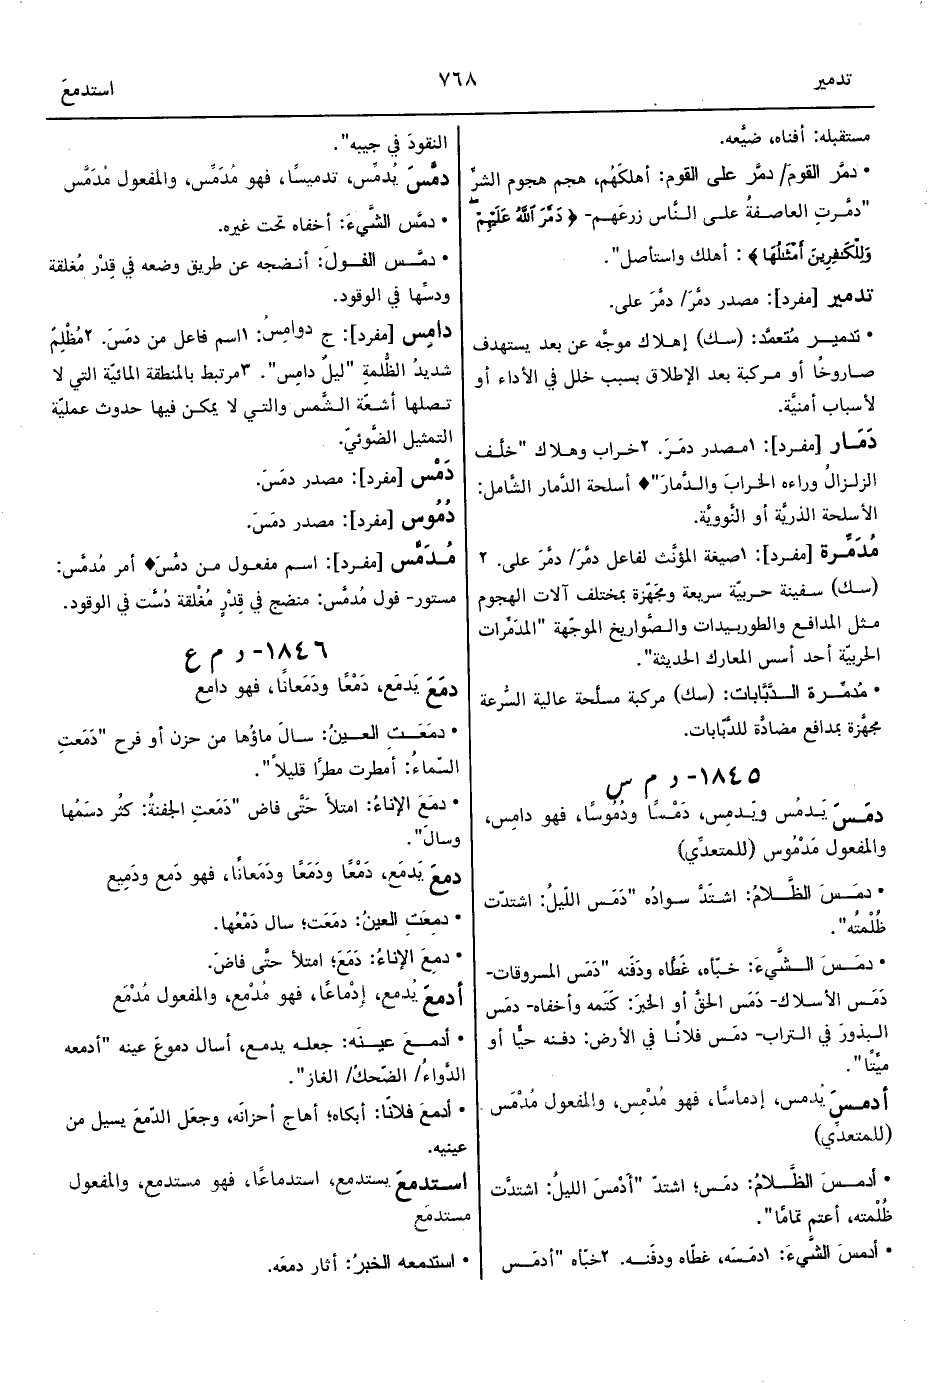 تدمير
٧٦٨
استدمعَ
مستقبله: أفناه، ضيَّعه.
• دمَّر القوم/ دمَّر على القوم: أهلكَهُم، هجم هجوم الشرِّ
"دمَّرتِ العاصفةُ على النَّاس زرعَهم- ﴿ دَمَّرَ ٱللَّهُ عَلَيْهِمْ
وَلِلْكَٰفِرِينَ أَمْثَٰلُهَا ﴾: أهلك واستأصل".
تدمير [مفرد]: مصدر دمَّرَ/ دمَّرَ على.
• تدمير مُتعمَّد: (سك) إهلاك موجَّه عن بعد يستهدف
صاروخًا أو مركبة بعد الإطلاق بسبب خلل في الأداء أو
لأسباب أمنيَّة.
دَمَار [مفرد]: ١مصدر دمَرَ. ٢خراب وهلاك "خلَّف
الزلزالُ وراءه الخرابَ والدَّمارَ"♦ أسلحة الدَّمار الشَّامل:
الأسلحة الذريَّة أو النَّوويَّة.
مُدَمِّرة [مفرد]: ١صيغة المؤنَّث لفاعل دمَّرَ/ دمَّرَ على. ٢
(سك) سفينة حربيّة سريعة ومجَهّزة بمختلف آلات الهجوم
مثل المدافع والطوربيدات والصَّواريخ الموجّهة "المدَمِّرات
الحربيّة أحد أسس المعارك الحديثة".
• مُدمِّرة الدَّبَّابات: (سك) مركبة مسلَّحة عالية السُّرعة
مجهَّزة بمدافع مضادَّة للدَّبّابات.
١٨٤٥- د م س
دمَسَ يَدمُس ويَدمِس، دَمْسًا ودُمُوسًا، فهو دامِس،
والمفعول مَدْمُوس (للمتعدِّي)
• دمَسَ الظَّلامُ: اشتَدَّ سوادُه "دَمَس اللّيلُ: اشتدّت
ظُلْمتُه".
• دمَسَ الشَّيءَ: خبّأه، غَطَّاه ودَفَنه "دَمَس المسروقات-
دَمَس الأسلاك- دَمَس الحقَّ أو الخبَرَ: كَتَمه وأخفاه- دمَس
البذورَ في التراب- دمَس فلانًا في الأرض: دفنه حيًّا أو
ميَّتًا".
أدمسَ يُدمس، إدماسًا، فهو مُدْمِس، والمفعول مُدْمَس
(للمتعدِّي)
• أدمسَ الظَّلامُ: دمَس؛ اشتدّ "أَدْمسَ الليلُ: اشتدَّت
ظُلْمته، أعتم تمامًا".
• أدمسَ الشَّيءَ: ١دمَسَه، غطّاه ودفَنه. ٢خبّأه "أدمَس
النقودَ في جيبه".
دمَّسَ يُدمِّس، تدميسًا، فهو مُدَمِّس، والمفعول مُدَمَّس
• دمَّس الشَّيءَ: أخفاه تحت غيره.
• دمَّس الفولَ: أنضجه عن طريق وضعه في قِدْر مُغلقة
ودسِّها في الوقود.
دامِس [مفرد]: ج دوامِسُ: ١اسم فاعل من دمَسَ. ٢مُظْلِمٌ
شديدُ الظُّلمةِ "ليلٌ دامِس". ٣مرتبط بالمنطقة المائيَّة التي لا
تصلها أشعّة الشَّمس والتي لا يمكن فيها حدوث عمليّة
التمثيل الضَّوئيّ.
دَمْس [مفرد]: مصدر دمَسَ.
دُمُوس [مفرد]: مصدر دمَسَ.
مُدَمَّس [مفرد]: اسم مفعول من دمَّسَ♦ أمر مُدمَّس:
مستور- فول مُدمَّس: منضج في قِدْرٍ مُغْلقة دُسَّت في الوقود.
١٨٤٦- د م ع
دمَعَ يَدمَع، دَمْعًا ودَمَعانًا، فهو دامع
• دمَعَتِ العينُ: سالَ ماؤها من حزن أو فرح "دَمَعتِ
السّماءُ: أمطرت مطرًا قليلاً".
• دمَعَ الإناءُ: امتلأَ حَتَّى فاض "دَمَعتِ الجفنةُ: كثُر دسَمُها
وسالَ".
دمِعَ يَدمَع، دَمْعًا ودَمَعًا ودَمَعانًا، فهو دَمِع ودَمِيع
• دمِعَتِ العينُ: دمَعَت؛ سال دَمْعُها.
• دمِعَ الإناءُ: دَمَعَ؛ امتلأ حتَّى فاضَ.
أدمعَ يُدمع، إدْماعًا، فهو مُدْمِع، والمفعول مُدْمَع
• أدمعَ عينَه: جعله يدمع، أسال دموعَ عينه "أدمعه
الدَّواءُ/ الضّحكُ/ الغاز".
• أدمعَ فلانًا: أبكاه؛ أهاج أحزانَه، وجعَل الدّمعَ يسيل من
عينيه.
استدمعَ يستدمع، استدماعًا، فهو مستدمِع، والمفعول
مستدمَع
• استدمعه الخبرُ: أثار دمعَه.